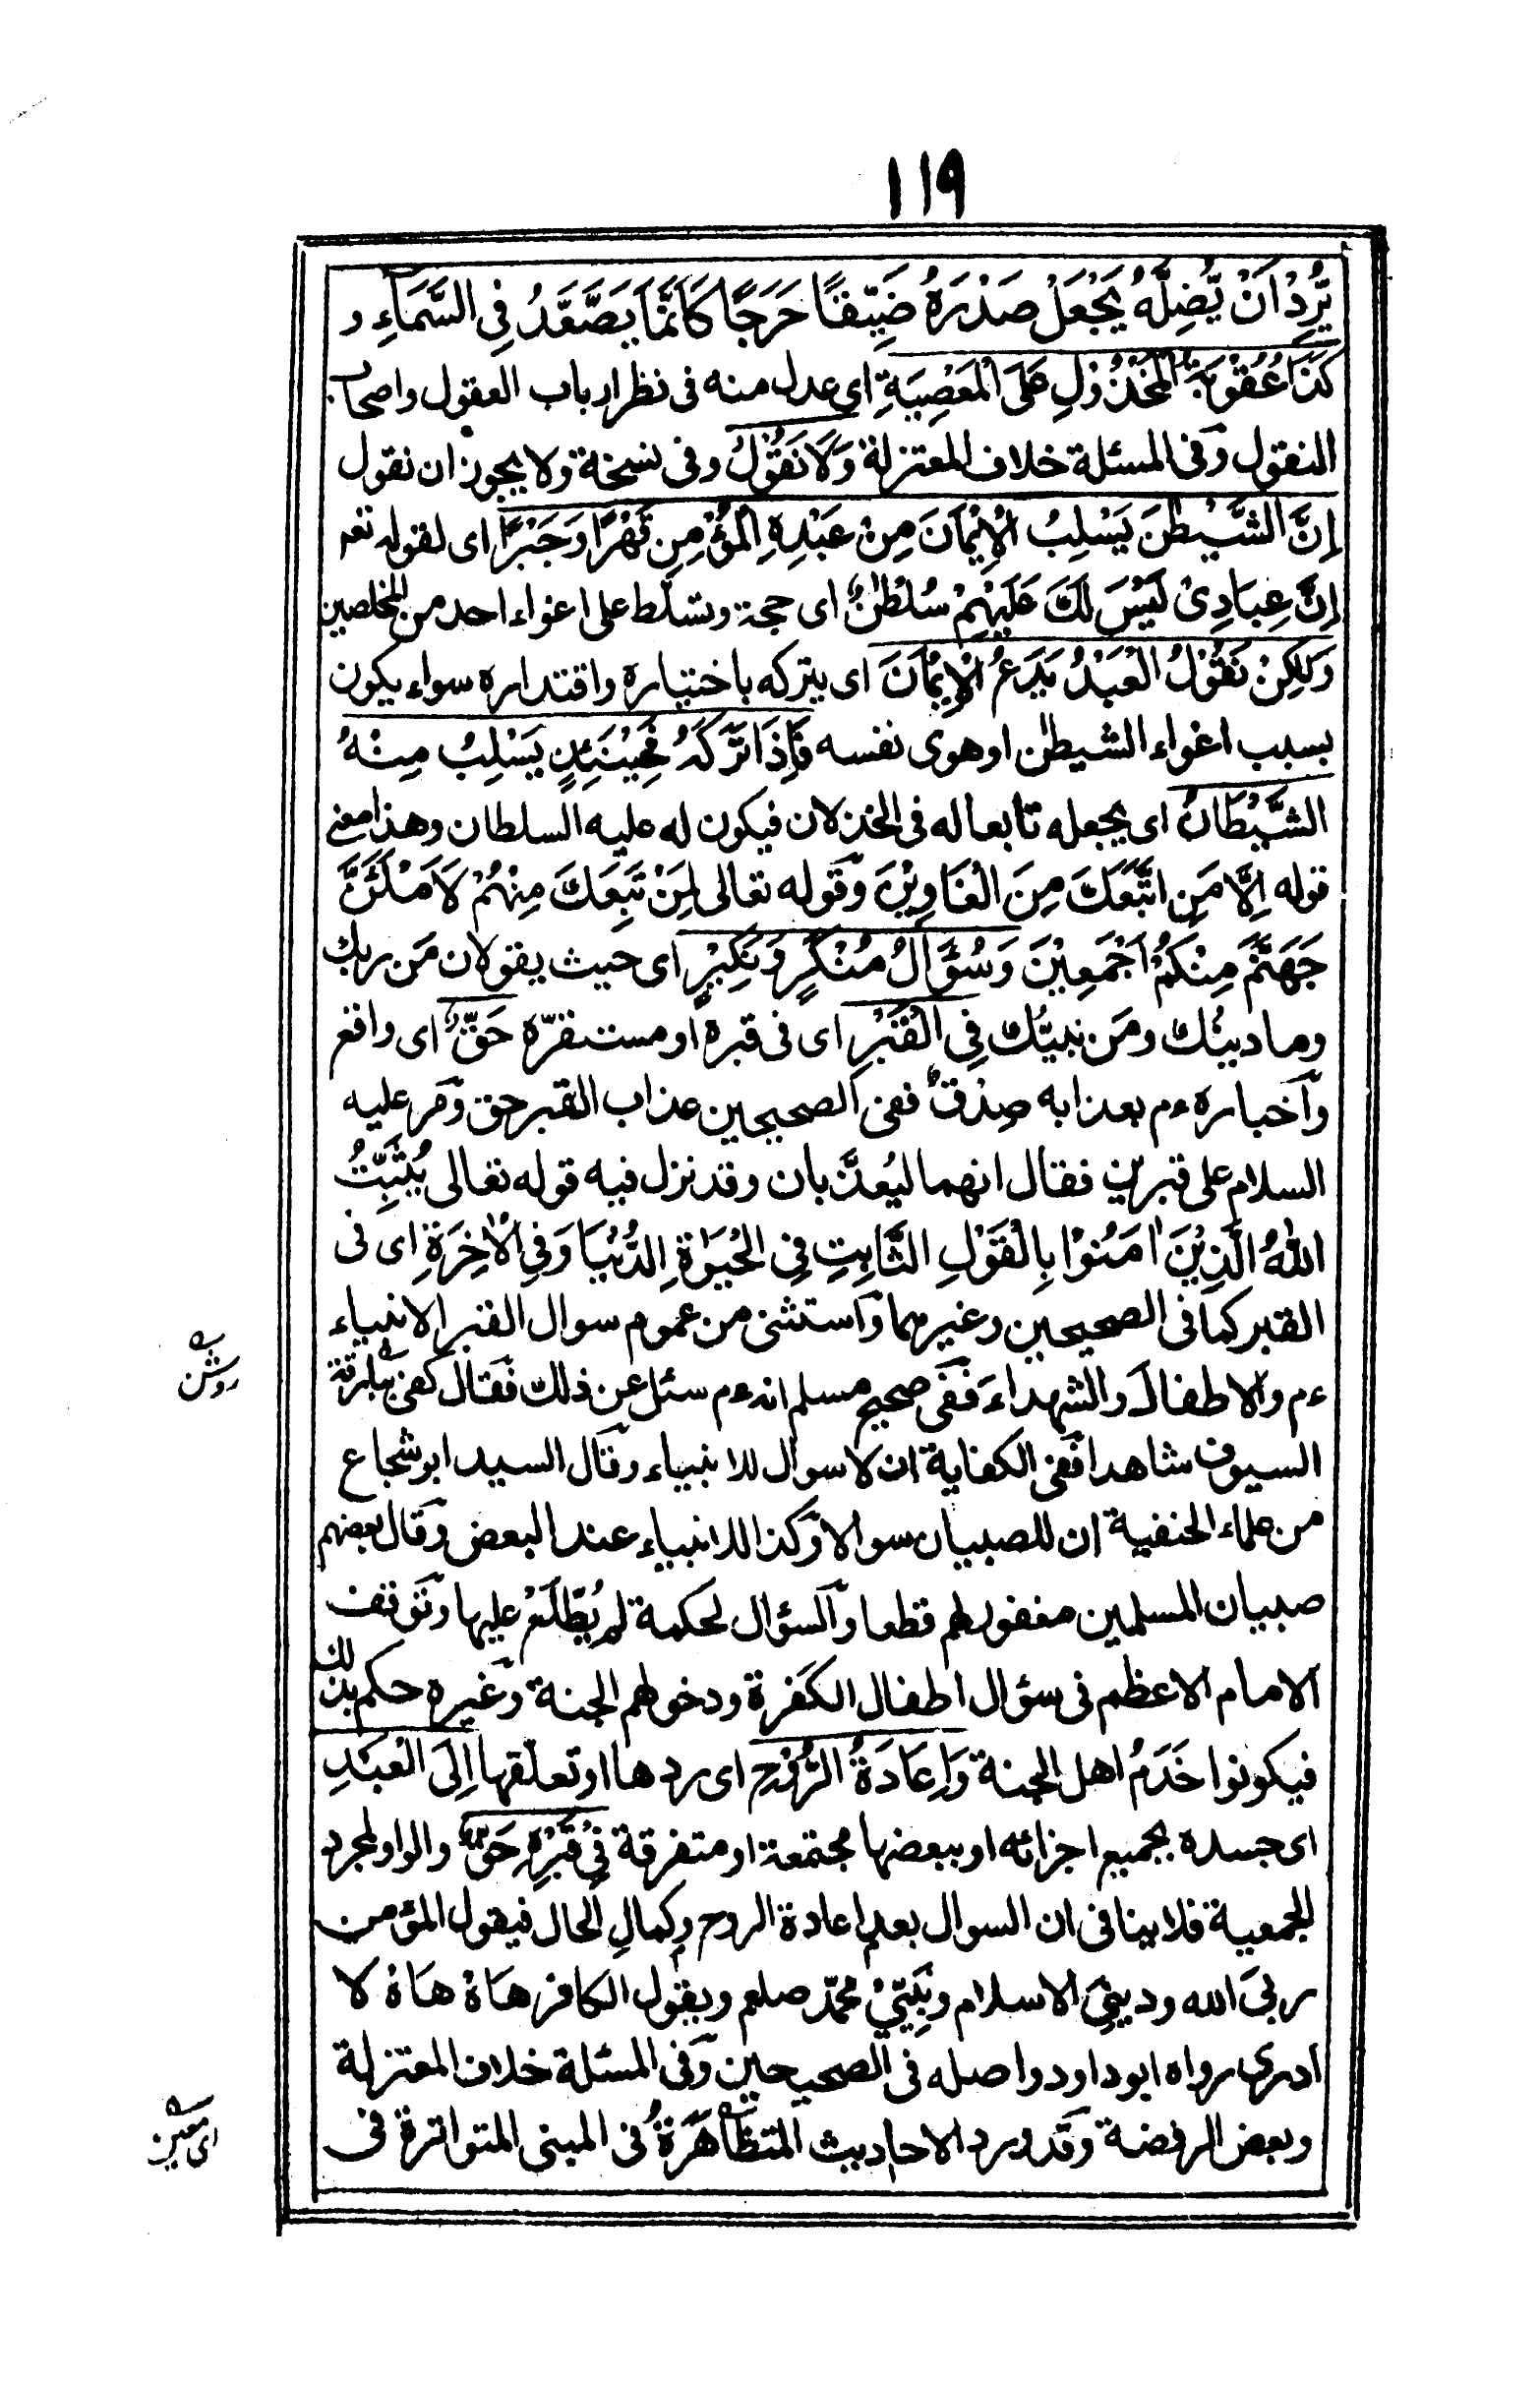 ١١٩
يُّرِدْ اَنْ يُّضِلَّهٗ يَجْعَلْ صَدْرَهٗ ضَيِّقًا حَرَجًا كَاَنَّمَا يَصَّعَّدُ فِى السَّمَآءِ و
كَذَا عُقُوْبَةُ الْمَخْذُوْلِ عَلَى الْمَعْصِيَةِ اى عدل منه فى نظر ارباب العقول واصحاب
النقول وفى المسئلة خلاف المعتزلة وَلَا نَقُوْلُ وفى نسخة ولا يجوز ان نقول
اِنَّ الشَّيْطٰنَ يَسْلِبُ الْاِيْمَانَ مِنْ عَبْدِهِ الْمُؤْمِنِ قَهْرًا وَجَبْرًا اى لقوله تعه
اِنَّ عِبَادِىْ لَيْسَ لَكَ عَلَيْهِمْ سُلْطٰنٌ اى حجة وتسلّط على اغواء احد من المخلصين
وَلٰكِنْ نَقُوْلُ الْعَبْدُ يَدَعُ الْاِيْمَانَ اى يتركه باختياره واقتداره سواء يكون
بسبب اغواء الشيطٰن او هوى نفسه فَاِذَا تَرَكَهٗ فَحِيْنَئِذٍ يَسْلِبُ مِنْهُ
الشَّيْطَانُ اى يجعله تابعا له فى الخذلان فيكون له عليه السلطان وهذا معنى
قوله اِلَّا مَنِ اتَّبَعَكَ مِنَ الْغَاوِيْنَ وقوله تعالى لَمَنْ تَبِعَكَ مِنْهُمْ لَاَمْلَئَنَّ
جَهَنَّمَ مِنْكُمْ اَجْمَعِيْنَ وَسُؤَالُ مُنْكَرٍ وَنَكِيْرٍ اى حيث يقولان مَن ربك
وما دينُك ومَن نبيّك فِى الْقَبْرِ اى فى قبره او مستقرّه حَقٌّ اى واقع
واخباره ءم بعذابه صِدْقٌ ففى الصحيحين عذاب القبر حق ومر عليه
السلام على قبرين فقال انهما ليُعذَّبان وقد نزل فيه قوله تعالى يُثَبِّتُ
اللّٰهُ الَّذِيْنَ اٰمَنُوْا بِالْقَوْلِ الثَّابِتِ فِى الْحَيٰوةِ الدُّنْيَا وَفِى الْاٰخِرَةِ اى فى
القبر كما فى الصحيحين وغيرهما واستثنى من عموم سوال القبر الانبياء
ءم والاطفال والشهداء ففى صحيح مسلم انه ءم سئل عن ذلك فقال كفى ببارقة
روشن
السيوف شاهدا ففى الكفاية ان لا سوال للانبياء وقال السيد ابو شجاع
من علماء الحنفية ان للصبيان سوالا وكذا للانبياء عند البعض وقال بعضهم
صبيان المسلمين مغفور لهم قطعا والسؤال لحكمة لم يُطَّلَعْ عليها وتوقف
الامام الاعظم فى سؤال اطفال الكفرة ودخولهم الجنة وغيره حكم بذلك
فيكونوا خَدَمُ اهل الجنة وَاِعَادَةُ الرُّوْحِ اى ردها او تعلقها اِلَى الْعَبْدِ
اى جسده بجميع اجزائه او ببعضها مجتمعة او متفرقة فِىْ قَبْرِهٖ حَقٌّ والواو لمجرد
الجمعية فلا ينافى ان السوال بعد اعادة الروح وكمالِ الحال فيقول المؤمن
ربىَ الله ودينىَ الاسلام ونَبِيِّىْ محمّد صلعم ويقول الكافر هَاهْ هَاهْ لا
ادرى رواه ابو داود واصله فى الصحيحين وفى المسئلة خلاف المعتزلة
وبعض الرفضة وقد ورد الاحاديث المتظَاهَرةُ فى المبنى المتواترة فى
اى معين